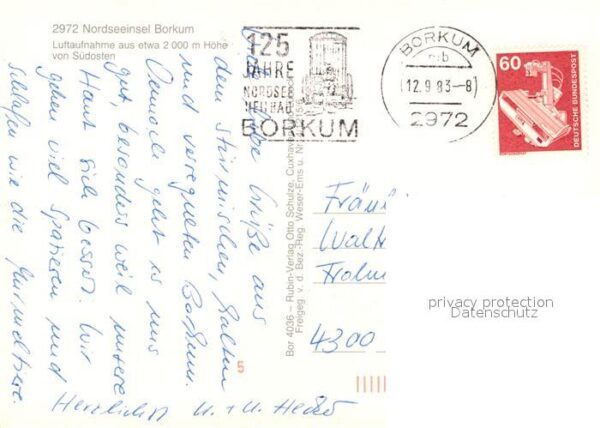 2972 Nordseeinsel Borkum
Luftaufnahme aus etwa 2 000 m Höhe
von Südosten
125
JAHRE
NORDSEE
HEILBAD
BORKUM
BORKUM
12.9.83-8
2972
60
DEUTSCHE BUNDESPOST
Grüße aus
dem stürmischen, kalten
und verregneten Borkum.
Dennoch geht es uns
gut, besonders weil unsere
Haut sich bessert. Wir
gehen viel spazieren und
schlafen wie die Murmeltiere.
Herzlichst
Bor 4036 – Rubin-Verlag Otto Schulze, Cuxhaven
Freigeg. v. d. Bez.-Reg. Weser-Ems u. Nr.
5
4300
privacy protection
Datenschutz